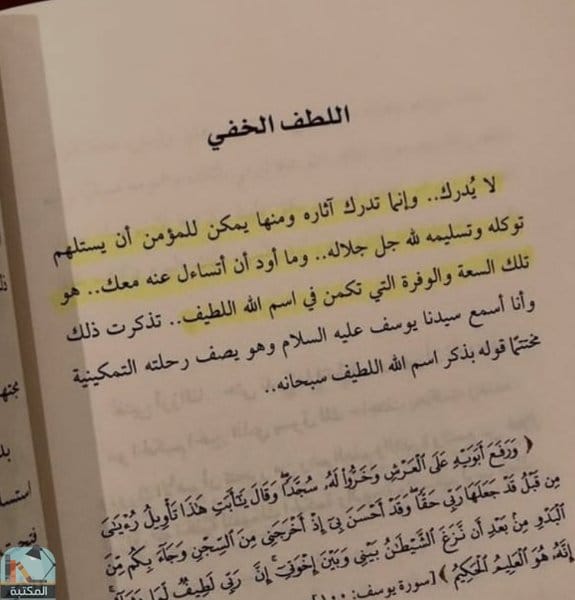 اللطف الخفي
لا يُدرك.. وإنما تدرك آثاره ومنها يمكن للمؤمن أن يستلهم
توكله وتسليمه لله جل جلاله.. وما أود أن أتساءل عنه معك.. هو
تلك السعة والوفرة التي تكمن في اسم الله اللطيف.. تذكرت ذلك
وأنا أسمع سيدنا يوسف عليه السلام وهو يصف رحلته التمكينية
مختتمًا قوله بذكر اسم الله اللطيف سبحانه..
﴿ وَرَفَعَ أَبَوَيْهِ عَلَى الْعَرْشِ وَخَرُّوا لَهُ سُجَّدًا وَقَالَ يَا أَبَتِ هَٰذَا تَأْوِيلُ رُءْيَايَ
مِن قَبْلُ قَدْ جَعَلَهَا رَبِّي حَقًّا وَقَدْ أَحْسَنَ بِي إِذْ أَخْرَجَنِي مِنَ السِّجْنِ وَجَاءَ بِكُم مِّنَ
الْبَدْوِ مِن بَعْدِ أَن نَّزَغَ الشَّيْطَانُ بَيْنِي وَبَيْنَ إِخْوَتِي إِنَّ رَبِّي لَطِيفٌ لِّمَا يَشَاءُ
إِنَّهُ هُوَ الْعَلِيمُ الْحَكِيمُ ﴾ [سورة يوسف: ١٠٠]
بل
استسا
المكتبة